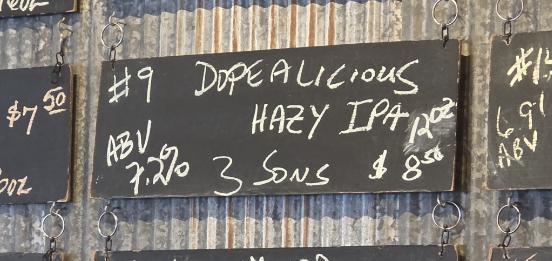 $7 50
#9 DOPEALICIOUS
HAZY IPA 12oz
ABV
7.2%
3 SONS $8 50
6.9%
ABV